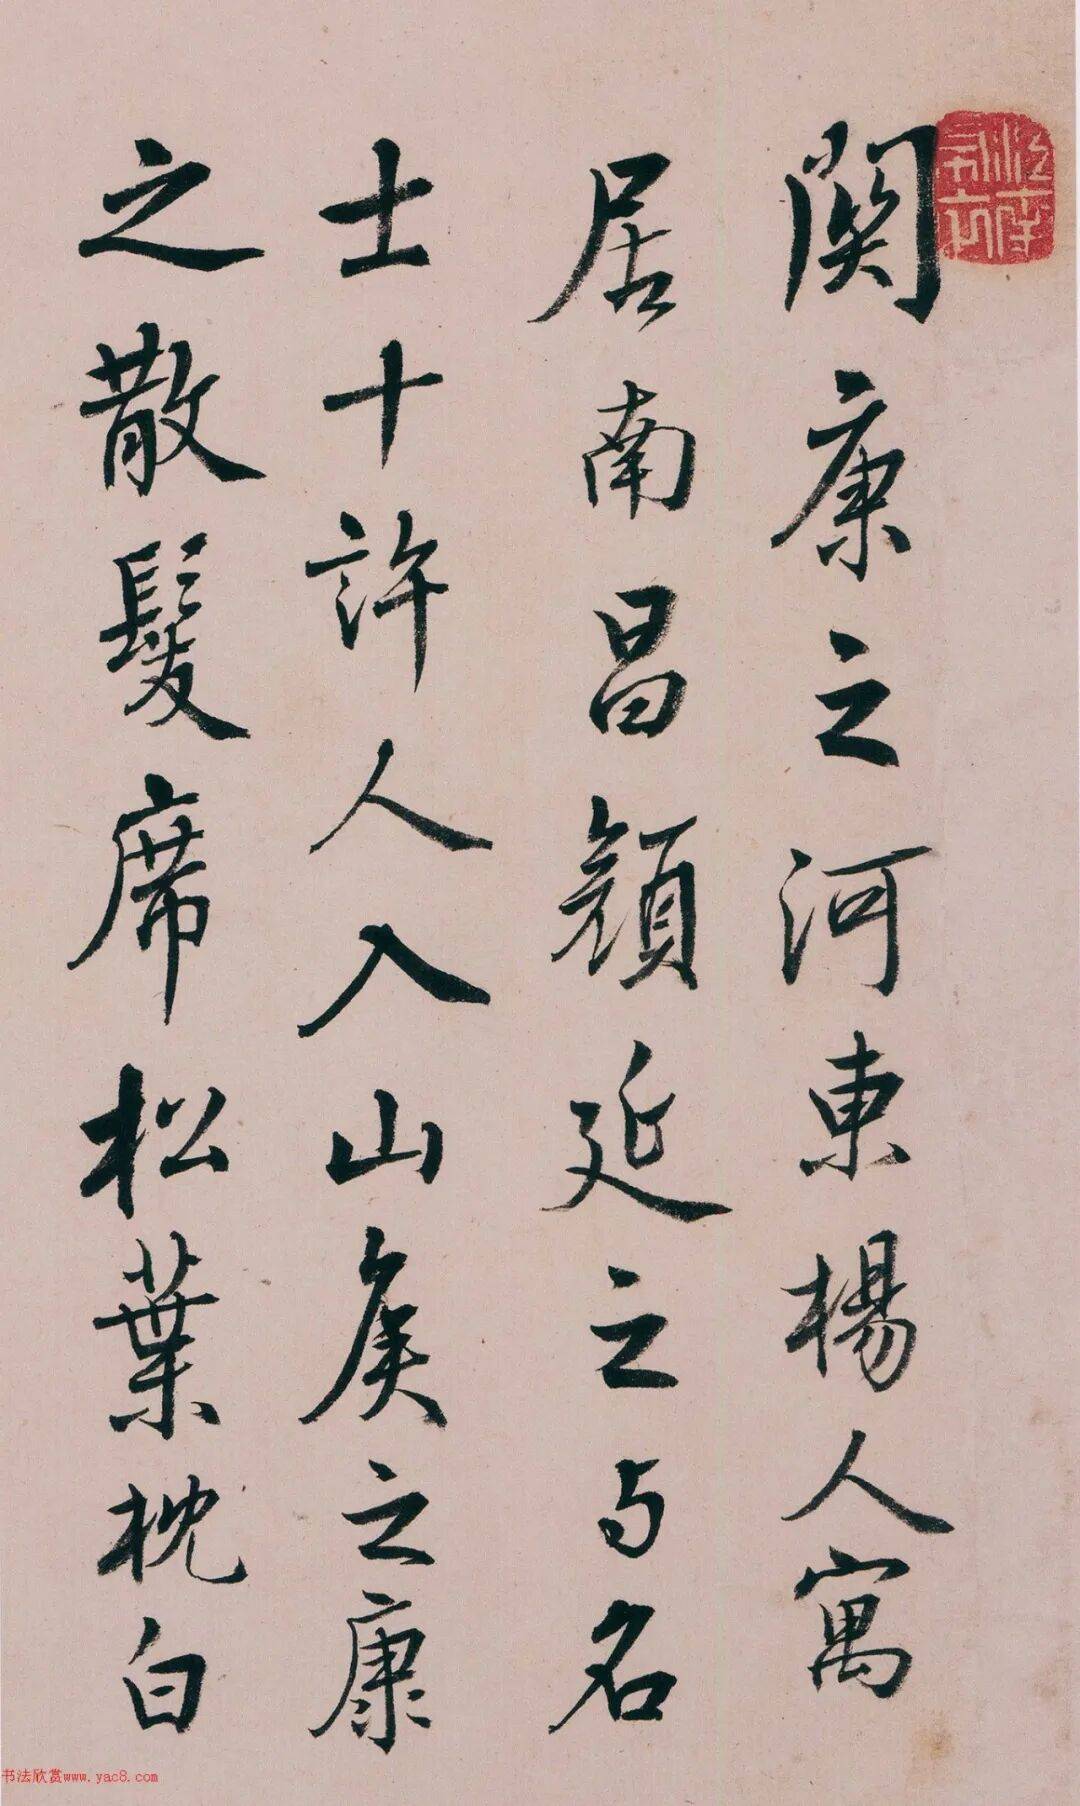 関康之河東楊人寓
居南昌顔延之与名
士十許人入山矦之康
之散髮席松葉枕白
书法欣赏www.yac8.com